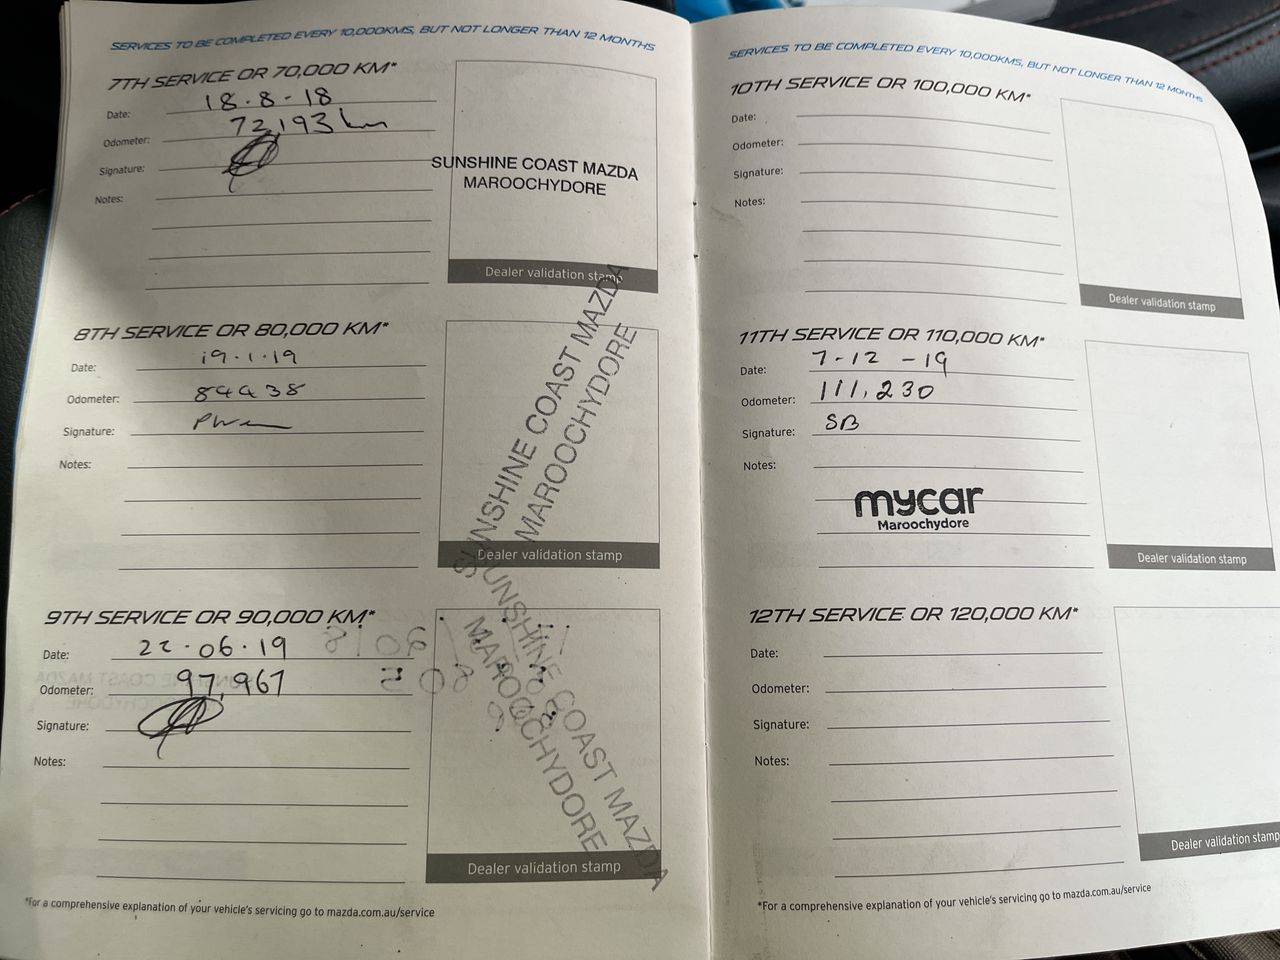 SERVICES TO BE COMPLETED EVERY 10,000KMS, BUT NOT LONGER THAN 12 MONTHS
7TH SERVICE OR 70,000 KM*
Date: 18.8-18
Odometer: 72,193 km
Signature:
Notes:
SUNSHINE COAST MAZDA
MAROOCHYDORE
Dealer validation stamp
8TH SERVICE OR 80,000 KM*
Date: 19.1.19
Odometer: 84438
Signature:
Notes:
SUNSHINE COAST MAZDA
MAROOCHYDORE
Dealer validation stamp
9TH SERVICE OR 90,000 KM*
Date: 22.06.19
Odometer: 97,967
Signature:
Notes:
SUNSHINE COAST MAZDA
MAROOCHYDORE
Dealer validation stamp
*For a comprehensive explanation of your vehicle's servicing go to mazda.com.au/service
SERVICES TO BE COMPLETED EVERY 10,000KMS, BUT NOT LONGER THAN 12 MONTHS
10TH SERVICE OR 100,000 KM*
Date:
Odometer:
Signature:
Notes:
Dealer validation stamp
11TH SERVICE OR 110,000 KM*
Date: 7-12-19
Odometer: 111,230
Signature: SB
Notes:
mycar
Maroochydore
Dealer validation stamp
12TH SERVICE OR 120,000 KM*
Date:
Odometer:
Signature:
Notes:
Dealer validation stamp
*For a comprehensive explanation of your vehicle's servicing go to mazda.com.au/service